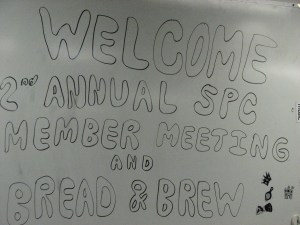 WELCOME
2nd ANNUAL SPC
MEMBER MEETING
AND
BREAD & BREW